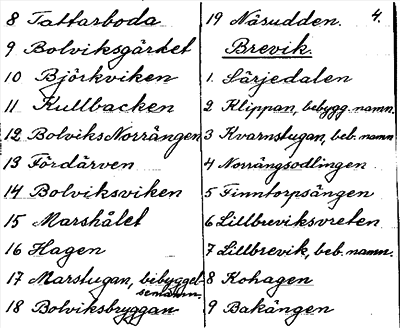 8 Tattarboda
9 Bolviksgärket
10 Björkviken
11 Kullbacken
12 Bolviks Norrängen
13 Fördärven
14 Bolviksviken
15 Marshålet
16 Hagen
17 Marstugan, bebyggel
senamn.
18 Bolviksbryggan
4.
19 Näsudden.
Brevik.
1. Särjedalen
2 Klippan, bebygg. namn.
3 Kvarnstugan, beb. namn
4 Norrängsodlingen
5 Finntorpsängen
6 Lillbreviksvreten
7 Lillbrevik, beb. namn.
8 Kohagen
9 Bakängen